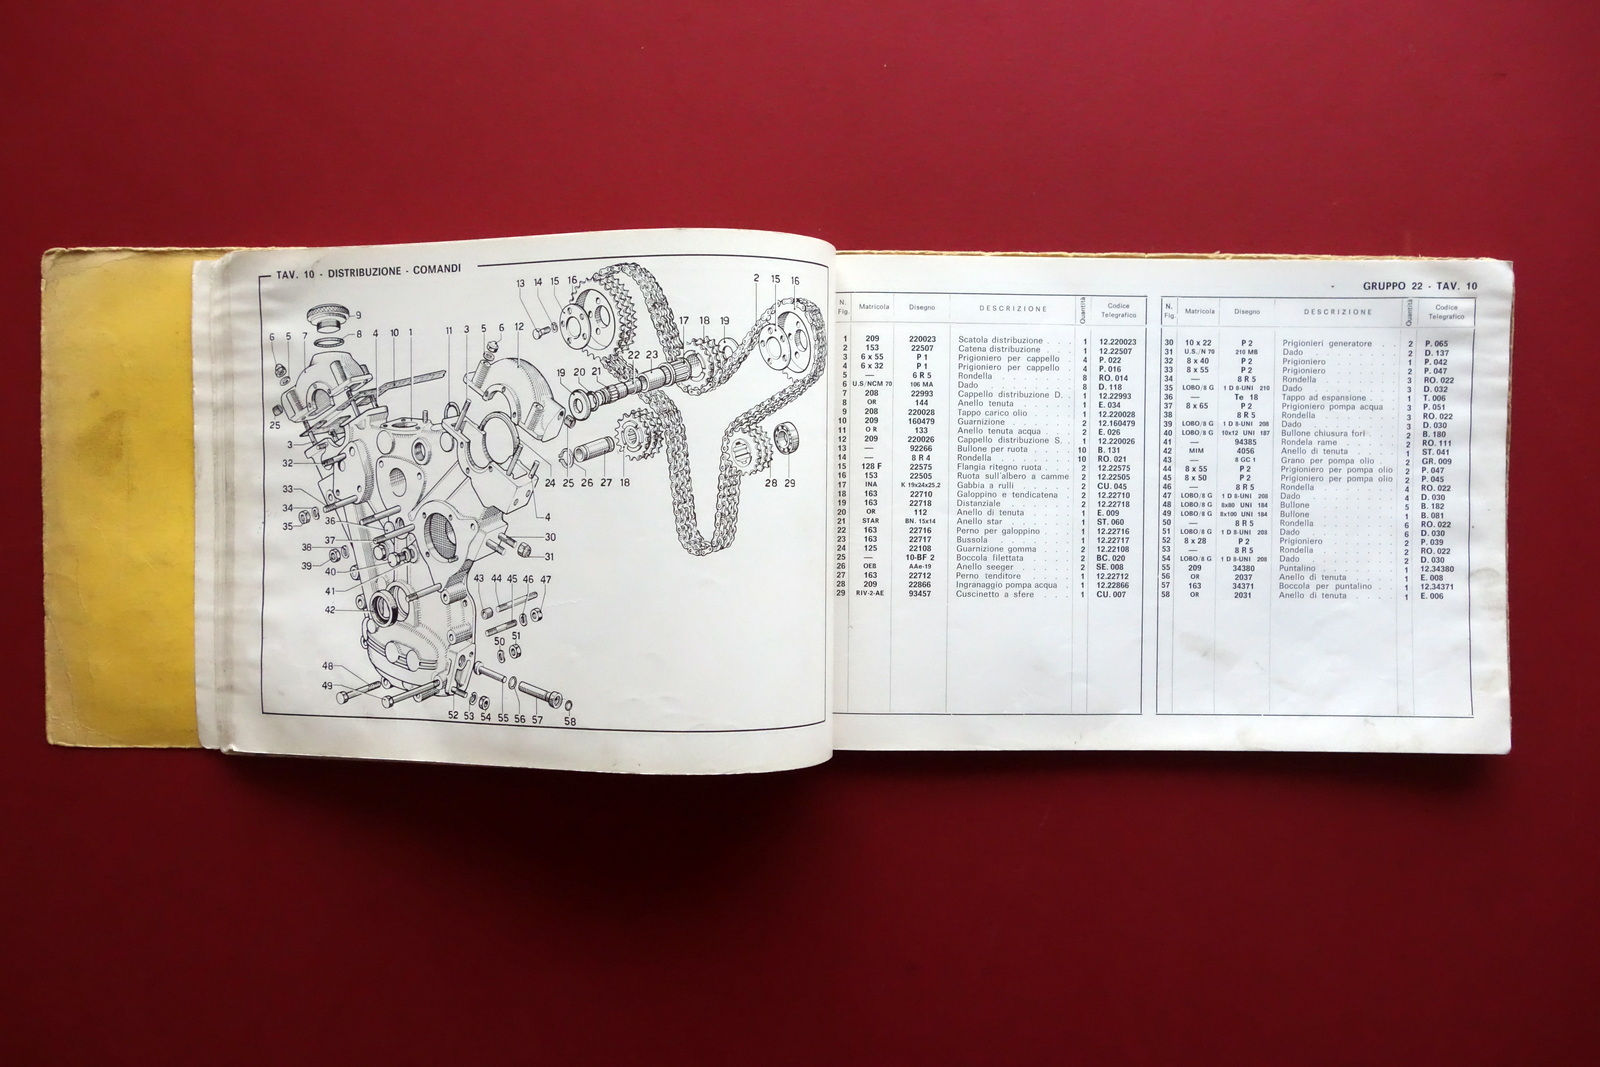 TAV. 10 - DISTRIBUZIONE - COMANDI
13 14 15 16 2 15 16
9
6 5 7 8 4 10 1 11 3 5 6 12 17 18 19
22 23
19 20 21
25
3
32
24 25 26 27 18 28 29
33
34
35
4
36
30
37
31
38
39
40
43 44 45 46 47
41
42
50 51
48
49
52 53 54 55 56 57 58
GRUPPO 22 - TAV. 10
N. Fig. Matricola Disegno DESCRIZIONE Quantità Codice Telegrafico
1 209 220023 Scatola distribuzione 1 12.220023
2 153 22507 Catena distribuzione 1 12.22507
3 6 x 55 P 1 Prigioniero per cappello 4 P. 022
4 6 x 32 P 1 Prigioniero per cappello 4 P. 016
5 — 6 R 5 Rondella 8 RO. 014
6 U.S/NCM 70 106 MA Dado 8 D. 118
7 208 22993 Cappello distribuzione D. 1 12.22993
8 OR 144 Anello tenuta 1 E. 034
9 208 220028 Tappo carico olio 1 12.220028
10 209 160479 Guarnizione 2 12.160479
11 O R 133 Anello tenuta acqua 2 E. 026
12 209 220026 Cappello distribuzione S. 1 12.220026
13 — 92266 Bullone per ruota 10 B. 131
14 — 8 R 4 Rondella 10 RO. 021
15 128 F 22575 Flangia ritegno ruota 2 12.22575
16 153 22505 Ruota sull'albero a camme 2 12.22505
17 INA K 19x24x25,2 Gabbia a rulli 2 CU. 045
18 163 22710 Galoppino e tendicatena 2 12.22710
19 163 22718 Distanziale 2 12.22718
20 OR 112 Anello di tenuta 1 E. 009
21 STAR BN. 15x14 Anello star 1 ST. 060
22 163 22716 Perno per galoppino 1 12.22716
23 163 22717 Bussola 1 12.22717
24 125 22108 Guarnizione gomma 2 12.22108
25 — 10-BF 2 Boccola filettata 2 BC. 020
26 OEB AAe-19 Anello seeger 2 SE. 008
27 163 22712 Perno tenditore 1 12.22712
28 209 22866 Ingranaggio pompa acqua 1 12.22866
29 RIV-2-AE 93457 Cuscinetto a sfere 1 CU. 007
N. Fig. Matricola Disegno DESCRIZIONE Quantità Codice Telegrafico
30 10 x 22 P 2 Prigionieri generatore 2 P. 065
31 U.S./N 70 210 MB Dado 2 D. 137
32 8 x 40 P 2 Prigioniero 1 P. 042
33 8 x 55 P 2 Prigioniero 2 P. 047
34 — 8 R 5 Rondella 3 RO. 022
35 LOBO/8 G 1 D 8-UNI 210 Dado 3 D. 032
36 — Te 18 Tappo ad espansione 1 T. 006
37 8 x 65 P 2 Prigioniero pompa acqua 3 P. 051
38 8 R 5 Rondella 3 RO. 022
39 LOBO/8 G 1 D 8-UNI 208 Dado 3 D. 030
40 LOBO/8 G 10x12 UNI 187 Bullone chiusura fori 2 B. 180
41 — 94385 Rondella rame 2 RO. 111
42 MIM 4056 Anello di tenuta 1 ST. 041
43 — 8 GC 1 Grano per pompa olio 2 GR. 009
44 8 x 55 P 2 Prigioniero per pompa olio 2 P. 047
45 8 x 50 P 2 Prigioniero per pompa olio 2 P. 045
46 — 8 R 5 Rondella 4 RO. 022
47 LOBO/8 G 1 D 8-UNI 208 Dado 4 D. 030
48 LOBO/8 G 8x80 UNI 184 Bullone 5 B. 182
49 LOBO/8 G 8x100 UNI 184 Bullone 1 B. 081
50 — 8 R 5 Rondella 6 RO. 022
51 LOBO/8 G 1 D 8-UNI 208 Dado 6 D. 030
52 8 x 28 P 2 Prigioniero 2 P. 039
53 — 8 R 5 Rondella 2 RO. 022
54 LOBO/8 G 1 D 8-UNI 208 Dado 2 D. 030
55 209 34380 Puntalino 1 12.34380
56 OR 2037 Anello di tenuta 1 E. 008
57 163 34371 Boccola per puntalino 1 12.34371
58 OR 2031 Anello di tenuta 1 E. 006